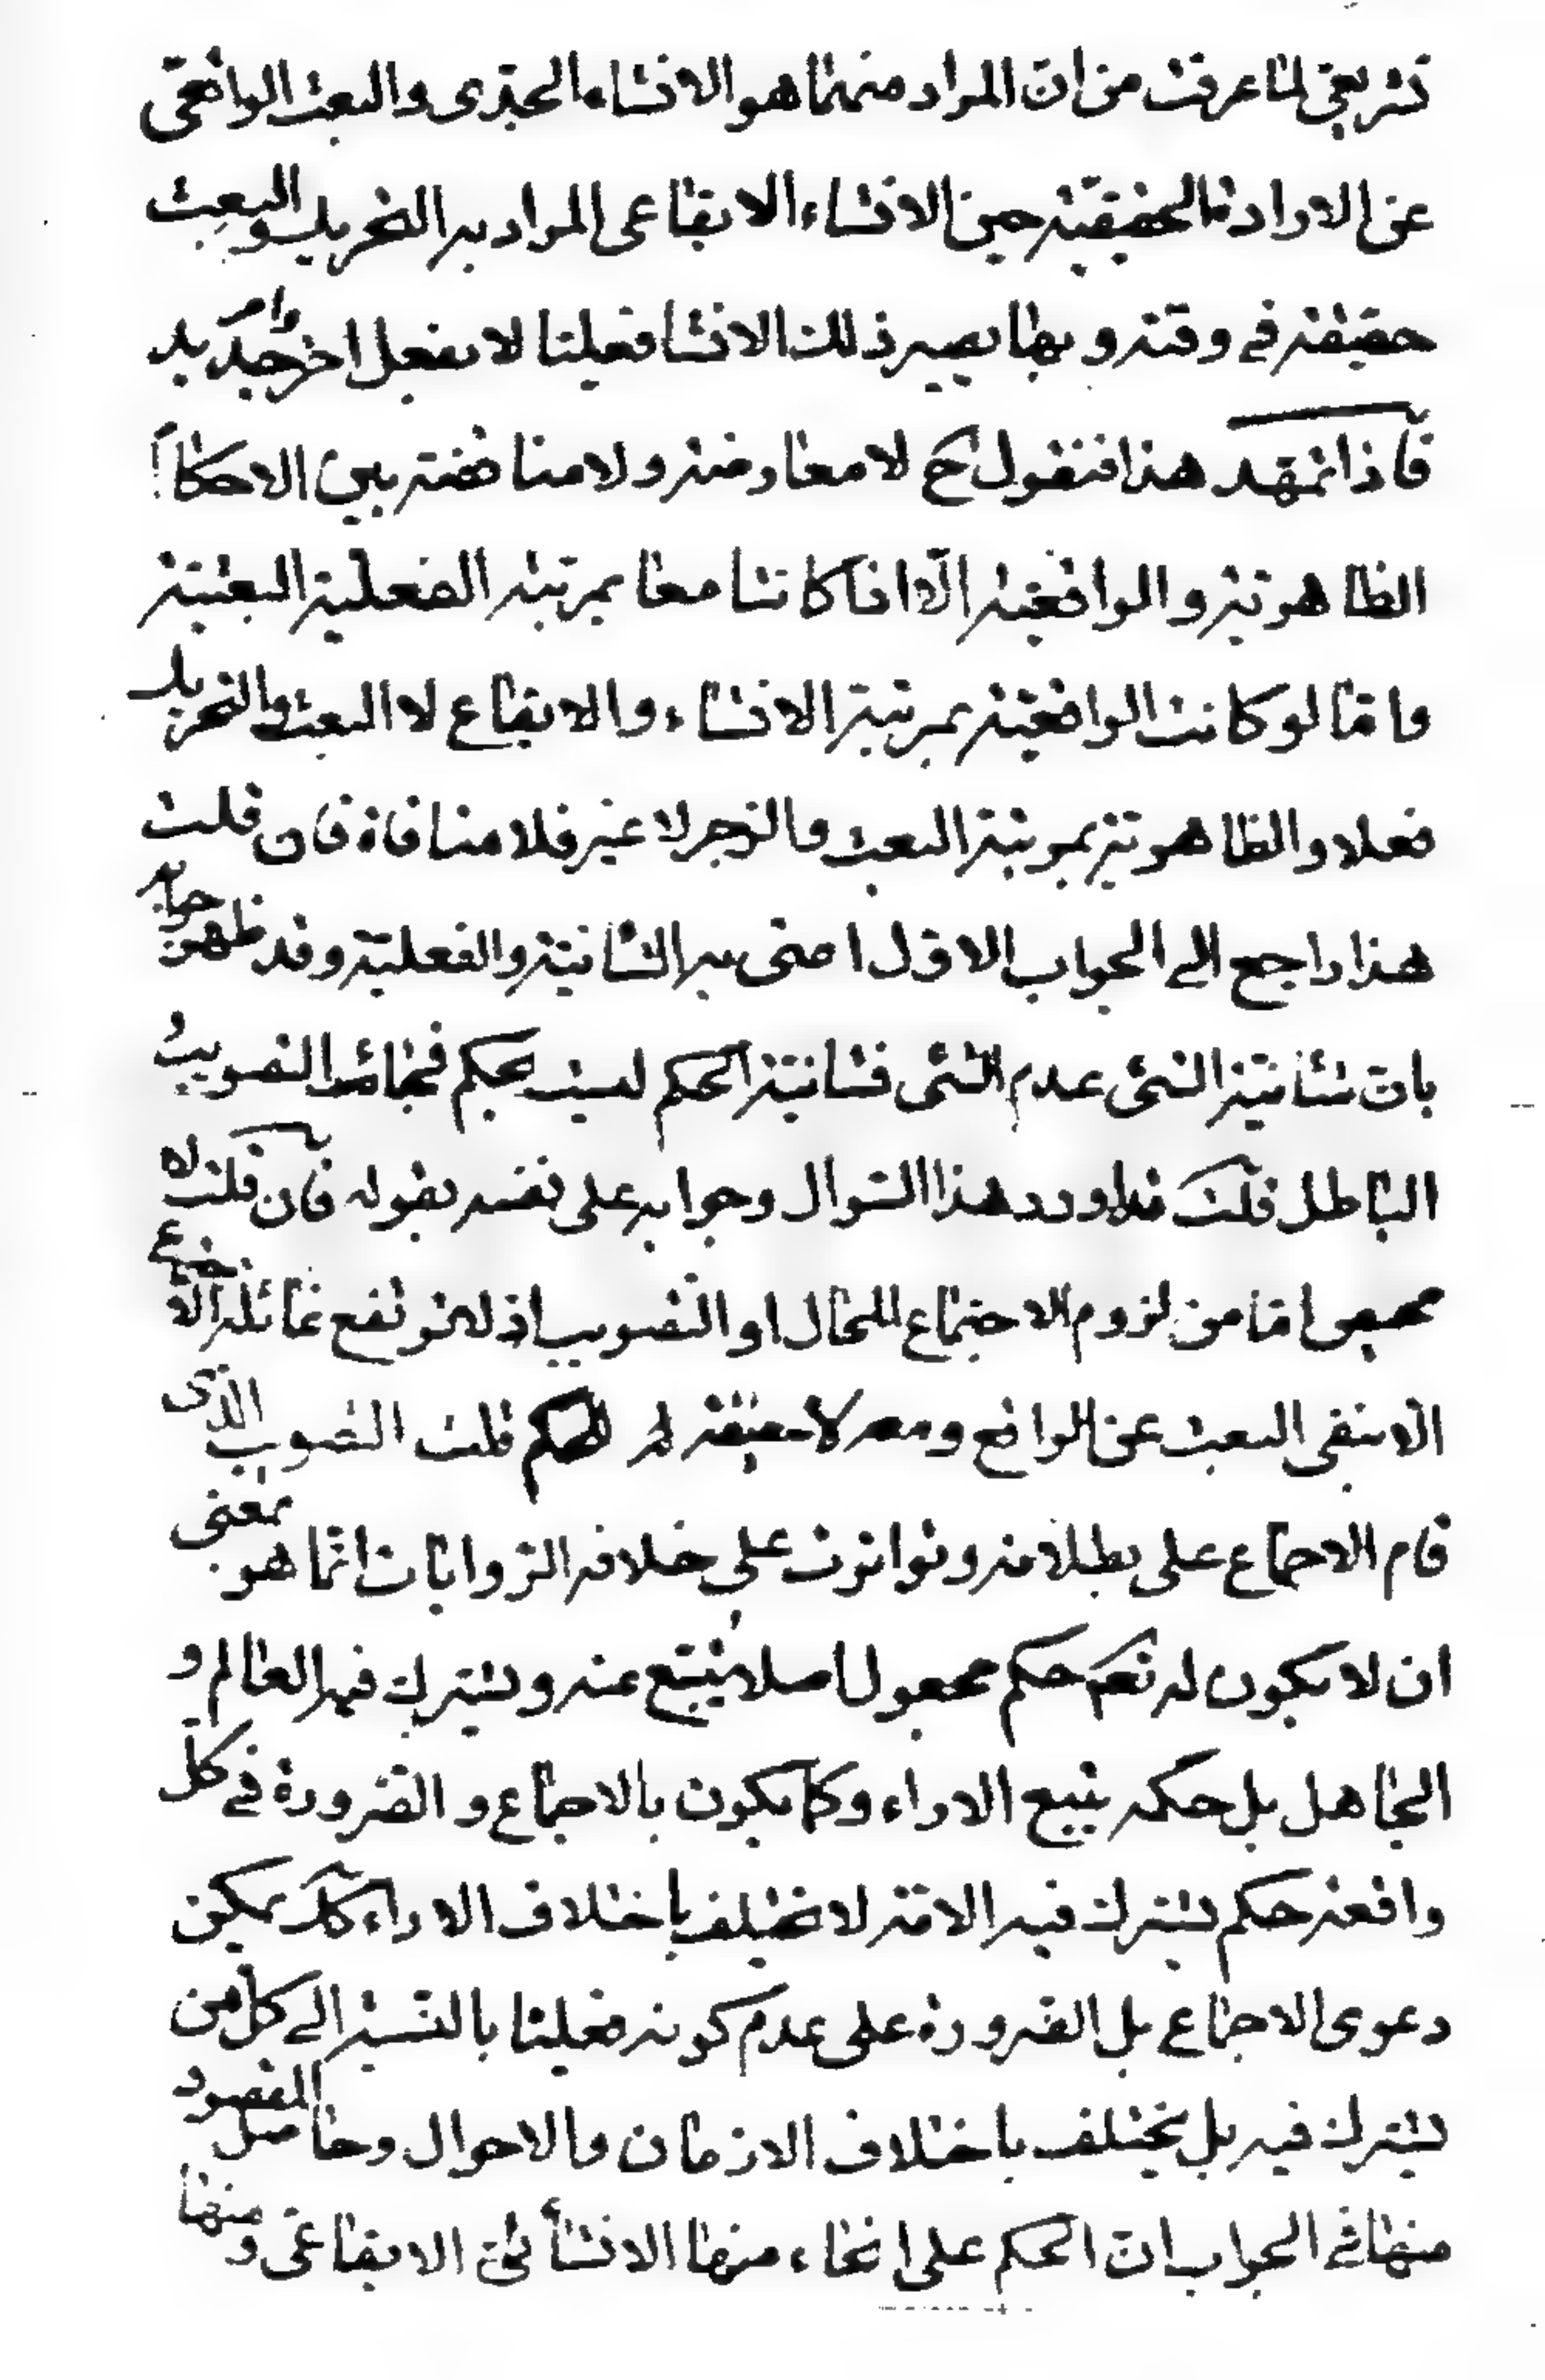 تشریعی لما عرفت من ان المراد منهما هو الانشاء الجدی و البعث الواقعی
عن الارادة الحقیقیة حین الانشاء الایقاعی المراد به التحریک و البعث
حقیقة فی وقته و بها یصیر ذلک الانشا فعلیا لا بفعل اخر جدید
فاذا تمهد هذا فنقول ح لا معارضة و لا مناقضة بین الاحکام
الظاهریة و الواقعیة الا اذا کانتا معا بمرتبة الفعلیة البعثیة
و اما لو کانت الواقعیة بمرتبة الانشاء و الایقاع لا البعث و التحریک
فعلا و الظاهریة بمرتبة البعث و الزجر لا غیر فلا منافاة فان قلت
هذا راجع الی الجواب الاول اعنی به الشانیة و الفعلیة و قد ظهر جوابه
بان شانیة الشئ عدم الشئ فشانیة الحکم لیست بحکم فجاء التصویب
الباطل قلت قد اورد هذا السؤال و جوابه علی نفسه بقوله فان قلت لا
محیص اما من لزوم الاجتماع المحال او التصویب اذ لا ترتفع غائلة الاجتماع
الا بنفی البعث عن الواقع و معه لا حقیقة للحکم قلت التصویب الذی
قام الاجماع علی بطلانه و تواترت علی خلافه الروایات انما هو بمعنی
ان لا یکون له تعالی حکم مجعول اصلا یتبع عنه و یشترک فیه العالم و
الجاهل بل حکمه یتبع الاراء و کما یکون بالاجماع و الضرورة فی کل
واقعة حکم یشترک فیه الامة لا یختلف باختلاف الاراء کک یمکن
دعوی الاجماع بل الضرورة علی عدم کونه فعلیا بالنسبة الی کل من
یشترک فیه بل یختلف باختلاف الازمان و الاحوال و حاصل المقصود
منها فی الجواب ان الحکم علی انحاء منها الانشائی الایقاعی و منها